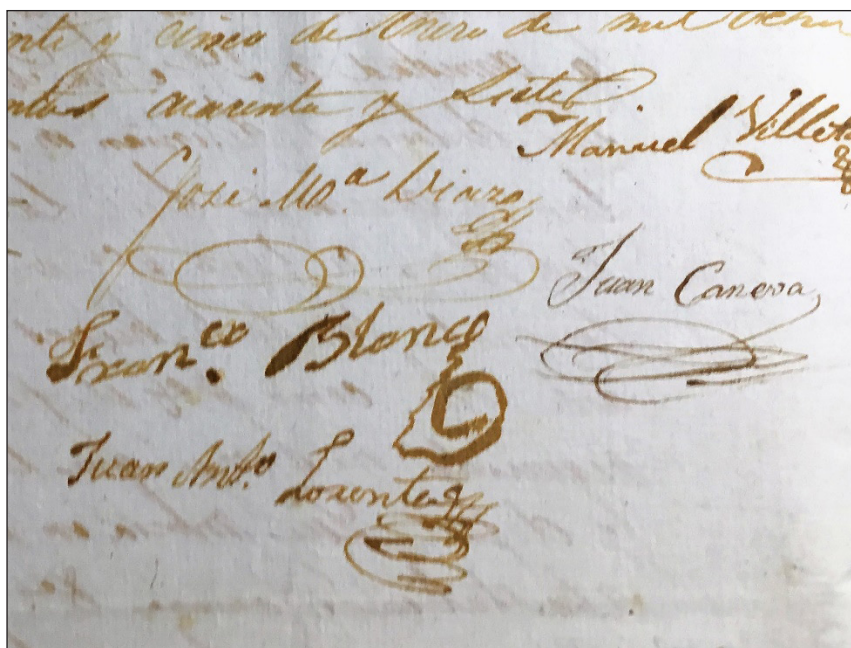 nte y cinco de Enero de mil ocho
ntos cuarenta y siete
Manuel
José Mª. Diaz
Juan Canova
Fran.co Blanco
Juan Ant.o Lorente